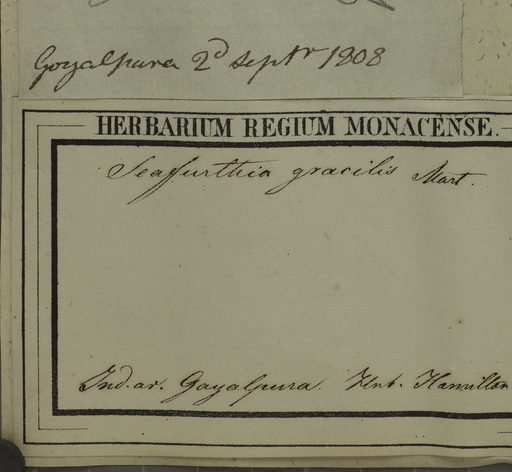 Goyalpara 2d septr 1808
HERBARIUM REGIUM MONACENSE.
Seaffurthia gracilis Mart.
Ind. or. Goyalpura. Hrb. Hamilton